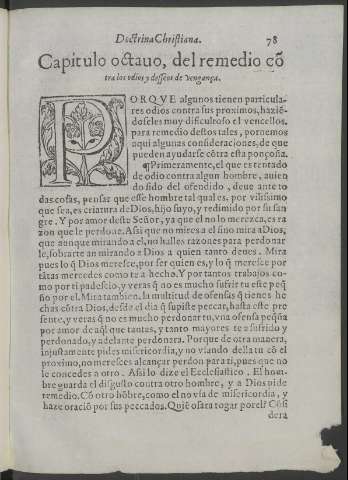 Doctrina Christiana. 78
Capitulo octauo, del remedio cõ
tra los odios y desseos de vengança.
PORQVE algunos tienen particula-
res odios contra sus proximos, haziẽ-
doseles muy dificultoso el vencellos.
para remedio destos tales, pornemos
aqui algunas consideraciones, de que
pueden ayudarse cõtra esta ponçoña.
¶Primeramente, el que es tentado
de odio contra algun hombre, auien
do sido del ofendido, deue ante to
das cosas, pensar que esse hombre tal qual es, por vilissimo
que sea, es criatura de Dios, hijo suyo, y redimido por su san
gre. Y por amor deste Señor, ya que el no lo merezca, es ra
zon que le perdone. Assi que no mires a el sino mira a Dios,
que aunque mirando a el, no halles razones para perdonar
le, sobrarte an mirando a Dios a quien tanto deues. Mira
pues lo q̃ Dios merece, por ser quien es, y lo q̃ merece por
tãtas mercedes como te a hecho. Y por tantos trabajos co-
mo por ti padescio, y veras q̃ no es mucho sufrir tu este peq̃
ño por el. Mira tambien, la multitud de ofensas q̃ tienes he
chas cõtra Dios, desde el dia q̃ supiste peccar, hasta este pre
sente, y veras q̃ no es mucho perdonar tu, vna ofensa peq̃ña
por amor de aq̃l que tantas, y tanto mayores te a sufrido y
perdonado, y adelante perdonara. Porque de otra manera,
injustamente pides misericordia, y no vsando della tu cõ el
proximo, no mereces alcançar perdon para ti, pues que no
le concedes a otro. Assi lo dize el Ecclesiastico. El hom-
bre guarda el disgusto contra otro hombre, y a Dios pide
remedio. Cõ otro hõbre, como el no vsa de misericordia, y
haze oraciõ por sus peccados. Quiẽ osara rogar por el? Cõsi
dera